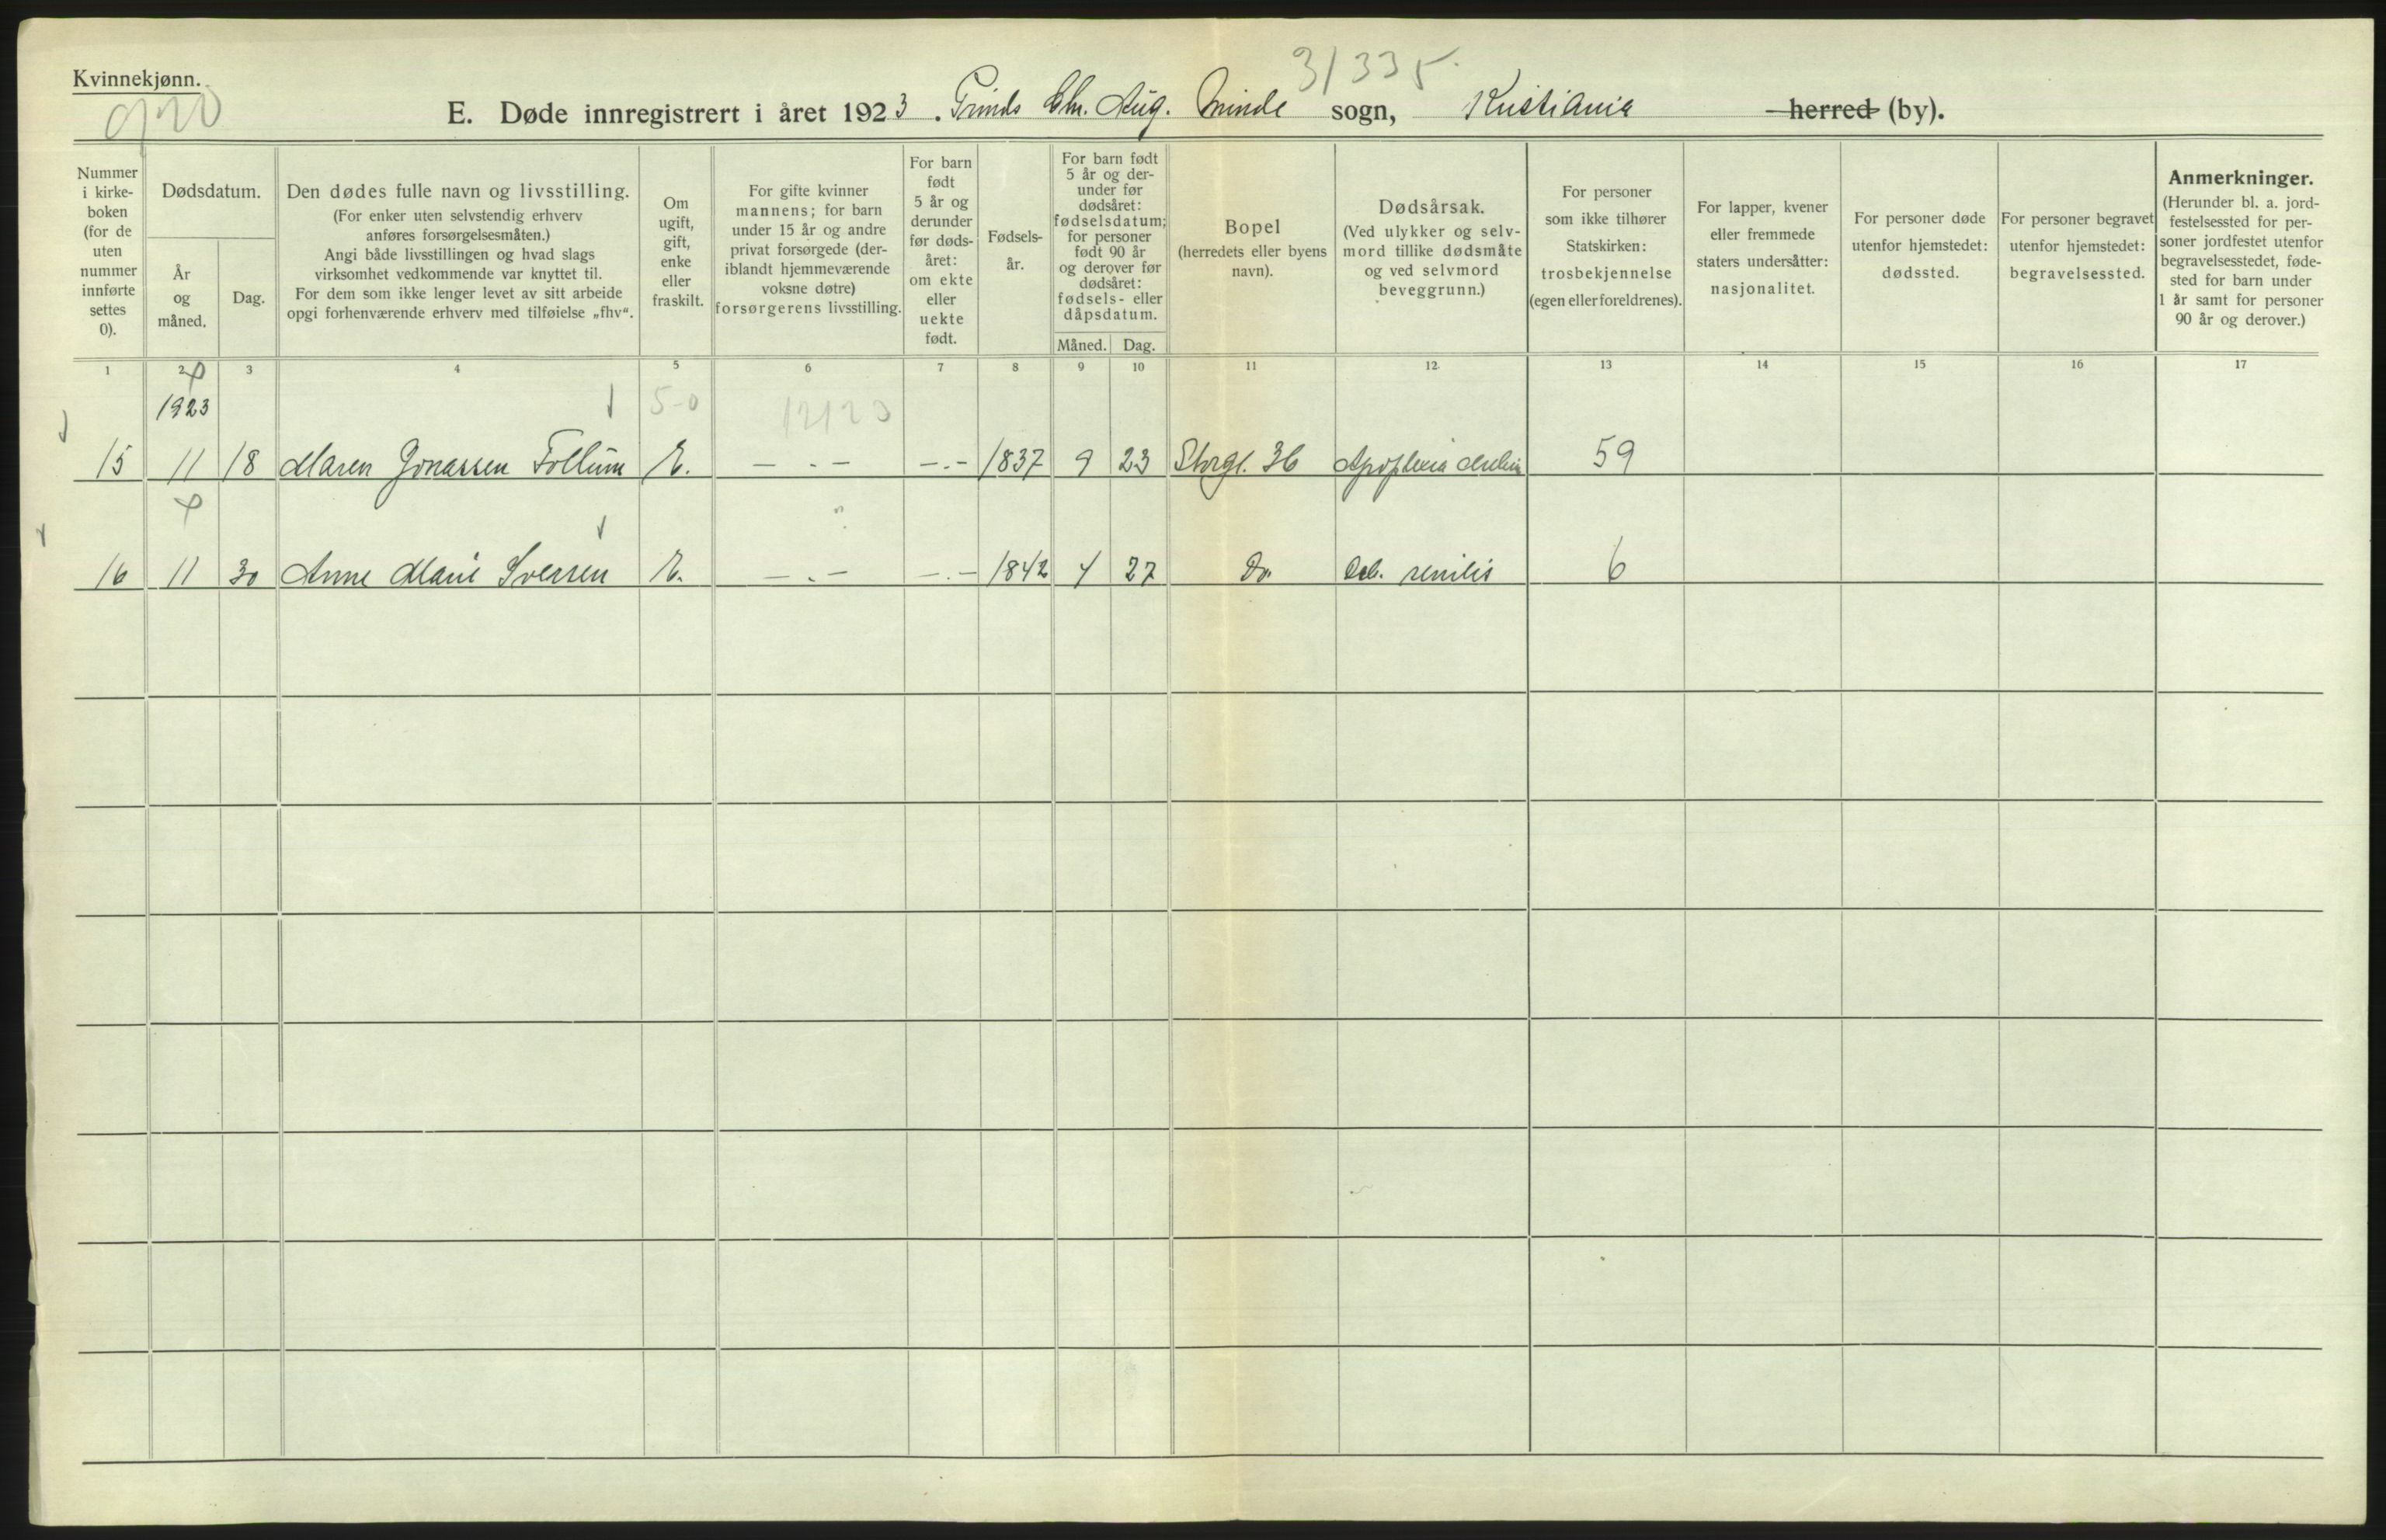 Kvinnekjønn.
920
31335
E. Døde innregistrert i året 1923. Prinds Chr. Aug. Minde sogn, Kristiania herred (by).
Nummer i kirke-boken (for de uten nummer innførte settes 0).
Dødsdatum.
År og måned.
Dag.
Den dødes fulle navn og livsstilling.
(For enker uten selvstendig erhverv
anføres forsørgelsesmåten.)
Angi både livsstillingen og hvad slags
virksomhet vedkommende var knyttet til.
For dem som ikke lenger levet av sitt arbeide
opgi forhenværende erhverv med tilføielse „fhv“.
Om ugift, gift, enke eller fraskilt.
For gifte kvinner
mannens; for barn
under 15 år og andre
privat forsørgede (der-
iblandt hjemmeværende
voksne døtre)
forsørgerens livsstilling.
For barn født 5 år og derunder før døds-året: om ekte eller uekte født.
Fødsels-år.
For barn født
5 år og der-
under før
dødsåret:
fødselsdatum;
for personer
født 90 år
og derover før
dødsåret:
fødsels- eller
dåpsdatum.
Måned. Dag.
Bopel
(herredets eller byens
navn).
Dødsårsak.
(Ved ulykker og selv-
mord tillike dødsmåte
og ved selvmord
beveggrunn.)
For personer
som ikke tilhører
Statskirken:
trosbekjennelse
(egen eller foreldrenes).
For lapper, kvener
eller fremmede
staters undersåtter:
nasjonalitet.
For personer døde
utenfor hjemstedet:
dødssted.
For personer begravet
utenfor hjemstedet:
begravelsessted.
Anmerkninger.
(Herunder bl. a. jord-
festelsessted for per-
soner jordfestet utenfor
begravelsesstedet, føde-
sted for barn under
1 år samt for personer
90 år og derover.)
1 2 3 4 5 6 7 8 9 10 11 12 13 14 15 16 17
1923 5-0 12123
15 11 18 Maren Jonassen Follum E. — . — — . — 1837 9 23 Storgt. 36 Apoplexia 59
16 11 30 Anne Marie Iversen E. — . — — . — 1842 4 27 Do. Deb. senilis 6